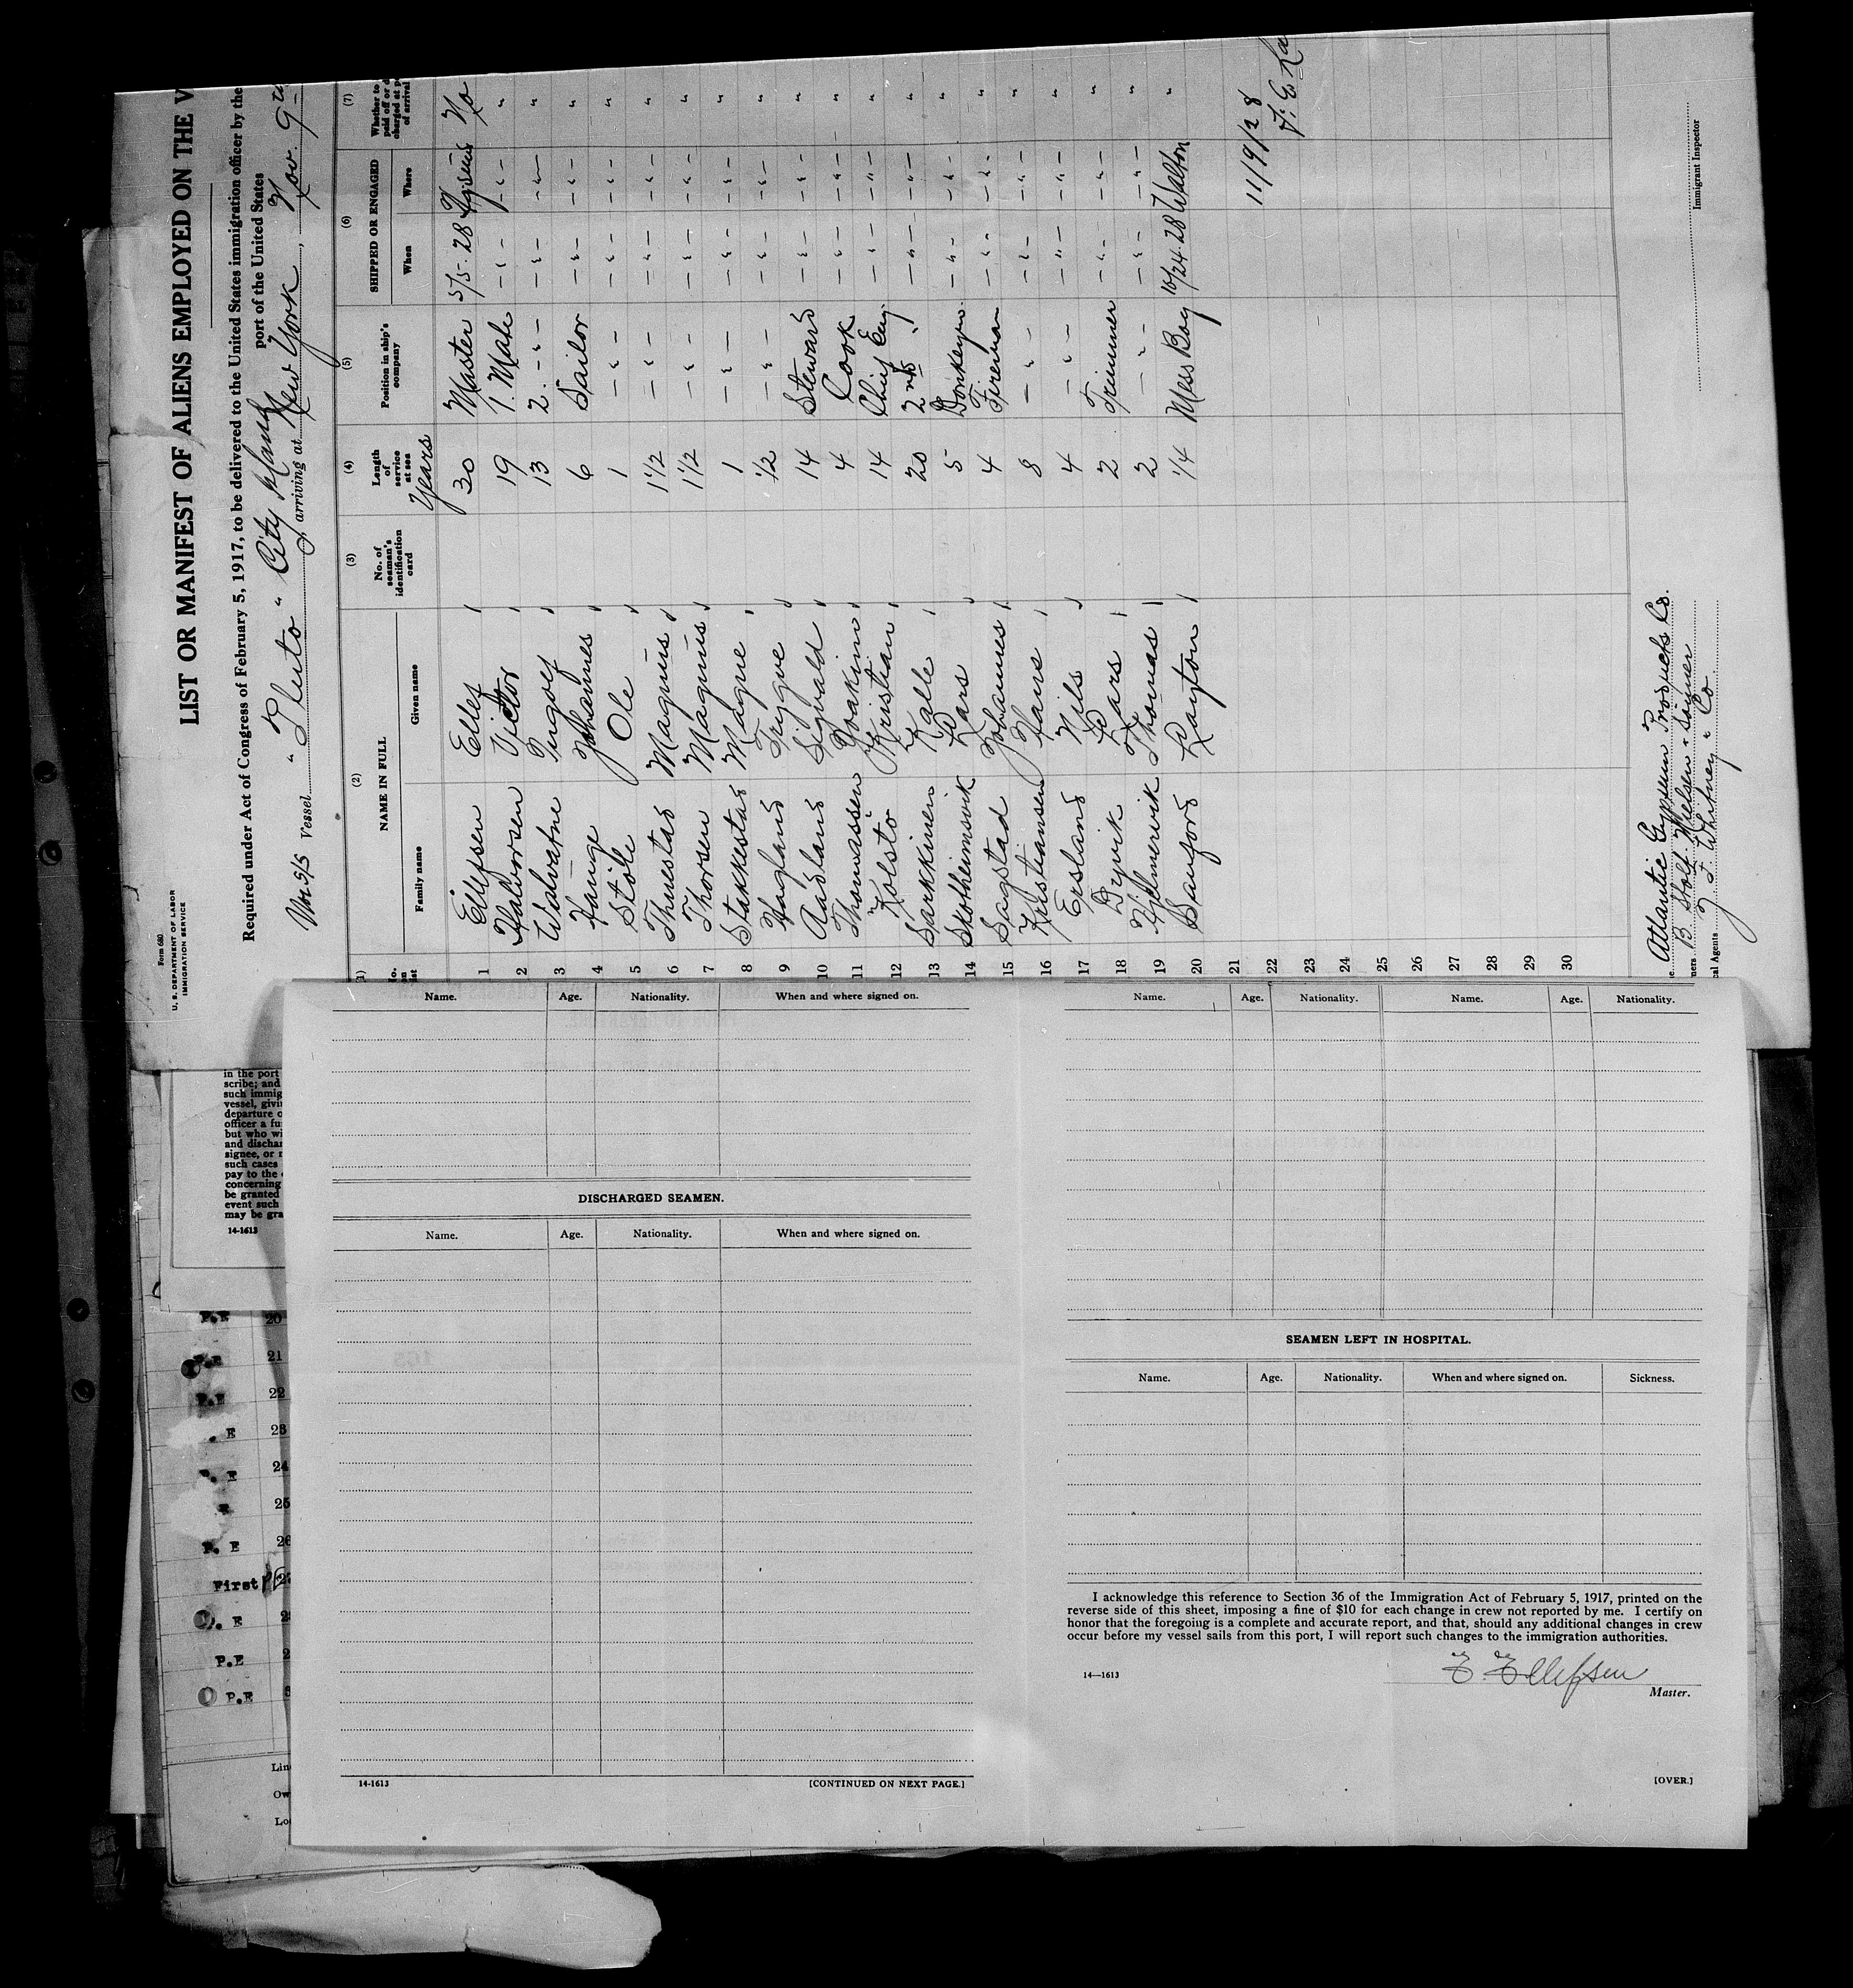 Form 680
U. S. DEPARTMENT OF LABOR
IMMIGRATION SERVICE
LIST OR MANIFEST OF ALIENS EMPLOYED ON THE V
Required under Act of Congress of February 5, 1917, to be delivered to the United States immigration officer by the
port of the United States
Vessel "Pluto" City Island, arriving at New York, Nov. 9
(2) (3) (4) (5) (6) (7)
NAME IN FULL
Family name Given name
No. of seaman's identification card
Length of service at sea
Years
Position in ship's company
SHIPPED OR ENGAGED
When Where
Whether to
paid off or d
charged at p
of arrival
1 Ellefsen Ellef 30 Master 5/5-28 No
2 Halvorsen Victor 19 1. Mate -"- -"- "
3 Ingolf 13 2. -"- -"- -"- "
4 Hauge Johannes 6 Sailor -"- -"- "
5 Stole Ole 1 -"- -"- -"- "
6 Thuestad Magnus 1 1/2 -"- -"- -"- "
7 Thorsen Magnus 1 1/2 -"- -"- -"- "
8 Stakkestad Magne 1 -"- -"- -"- "
9 Hagland Trygve 1/2 -"- -"- -"- "
10 Aadland Sigvald 14 Steward -"- -"- "
11 Thomassen Joakim 4 Cook -"- -"- "
12 Kolstö Kristian 14 Chief Eng. -"- -"- "
13 Sarkkinen Kalle 20 2nd " -"- -"- "
14 Skotheimsvik Lars 5 Donkeym. -"- -"- "
15 Sagstad Johannes 4 Fireman -"- -"- "
16 Kristiansen Hans 8 -"- -"- -"- "
17 Ersland Nils 4 -"- -"- -"- "
18 Dyvik Lars 2 Trimmer -"- -"- "
19 Thomas 2 -"- -"- -"- "
20 Sanford Layton 1/4 Mess Boy 10/24-28 Walton "
21
22
23
24
25
26
27
28
29
30
11/9/28
Atlantic Gypsum Products Co.
ners B. Stolt-Nielsen & Sonner
cal Agents J. F. Whitney & Co
Immigrant Inspector
in the port
scribe; and
such immig
vessel, givi
departure o
officer a fu
but who wi
and dischar
signee, or
such cases
pay to the
concerning
be granted
event such
may be gra
14-1613
P.E 20
21
P.E 22
. E 23
24
25
P. E 26
First
. E
P.E
P.E
Lin
Ow
Lo
Name. Age. Nationality. When and where signed on.
DISCHARGED SEAMEN.
Name. Age. Nationality. When and where signed on.
14-1613 [CONTINUED ON NEXT PAGE.]
Name. Age. Nationality. Name. Age. Nationality.
SEAMEN LEFT IN HOSPITAL.
Name. Age. Nationality. When and where signed on. Sickness.
I acknowledge this reference to Section 36 of the Immigration Act of February 5, 1917, printed on the
reverse side of this sheet, imposing a fine of $10 for each change in crew not reported by me. I certify on
honor that the foregoing is a complete and accurate report, and that, should any additional changes in crew
occur before my vessel sails from this port, I will report such changes to the immigration authorities.
14—1613
E. Ellefsen
Master.
[OVER.]